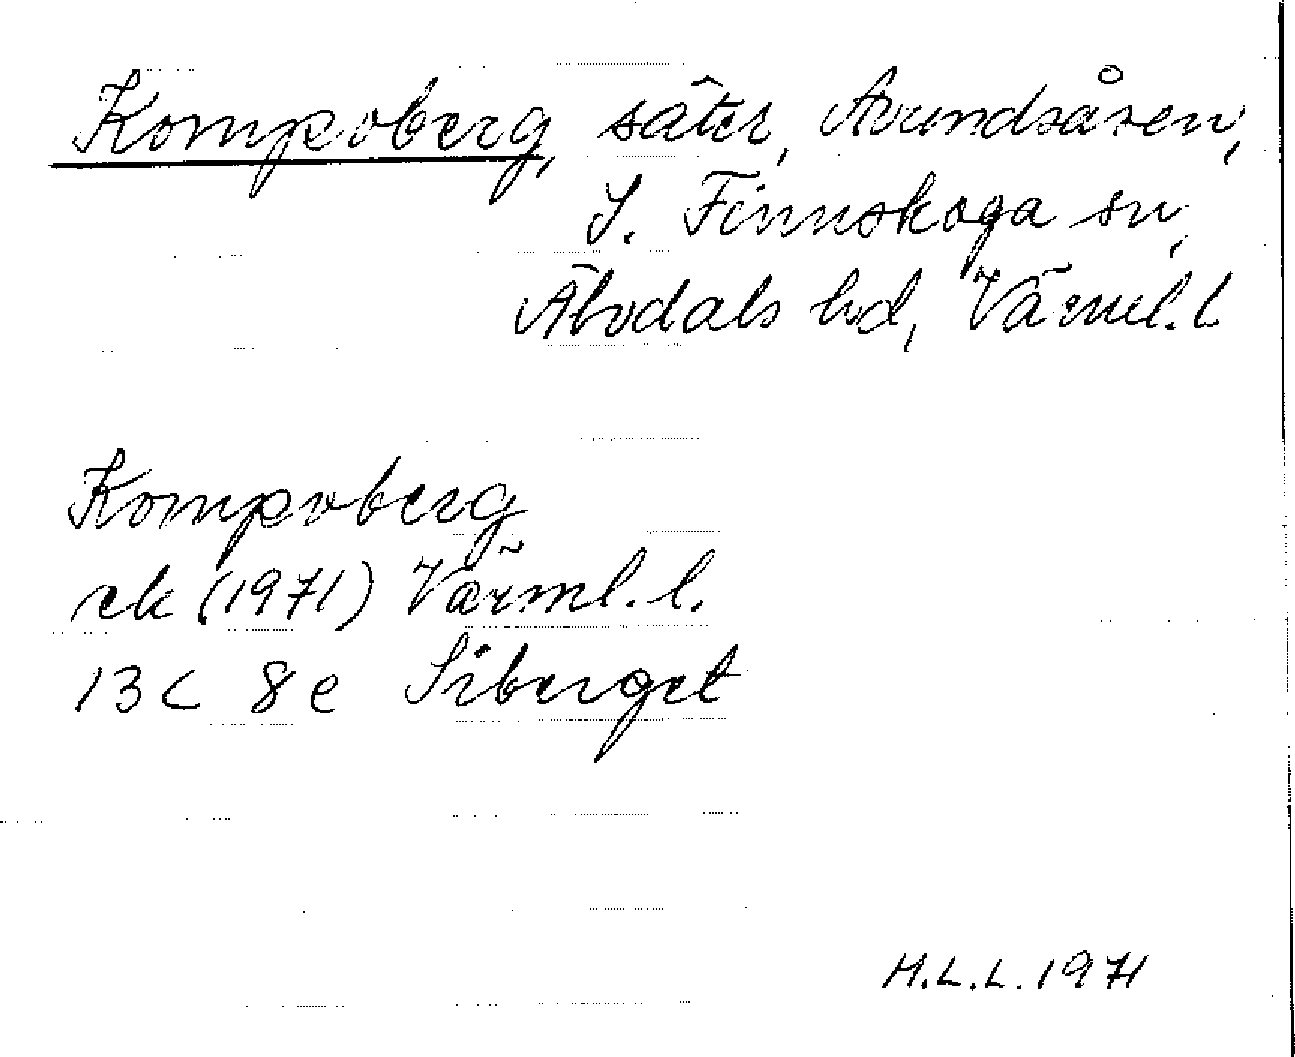 Kompoberg, säter, Avundsåsen,
S. Finnskoga sn,
Älvdals hd, Värml. l.
Kompoberg
ek (1971) Värml. l.
13 C 8 e Siberget
H.L.L. 1971